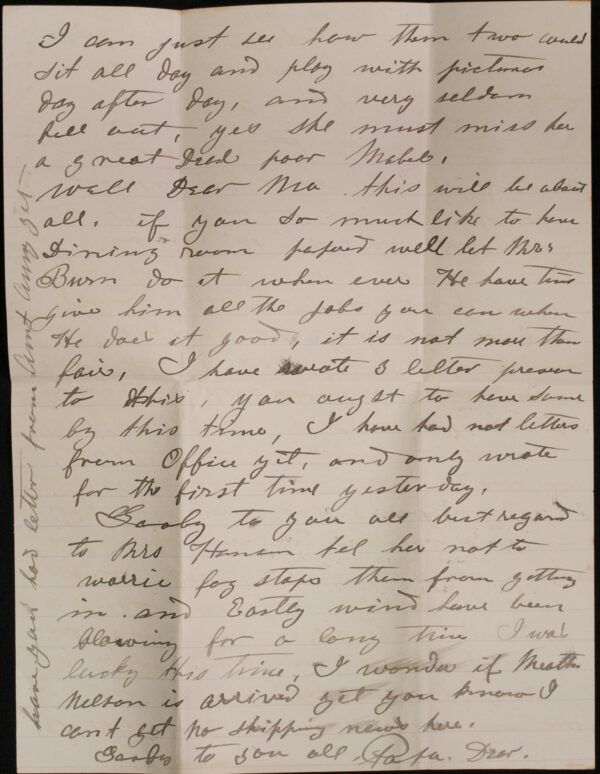 I can just see how them two could
sit all day and play with pictures
day after day, and very seldom
fell out, yes she must miss her
a great Deal poor Mabel.
Well Dear Ma this will be about
all. if you so much like to have
Dining room papered well let Mrs
Burn do it when ever He have time
give him all the jobs you can when
He does it good, it is not more than
fair, I have wrote 3 letter
to this, you ought to have some
by this time, I have had not letters
from Office yit, and only wrote
for the first time yesterday.
Gooby to you all best regard
to Mrs Hansen tel her not to
worrie fog stops them from getting
in and Eastly wind have been
blowing for a long time I was
lucky this time, I wonder if
Nelson is arrived yet you know I
cant get no shipping news here.
to you all Papa. Dear.
have you had letter from Aunt yit